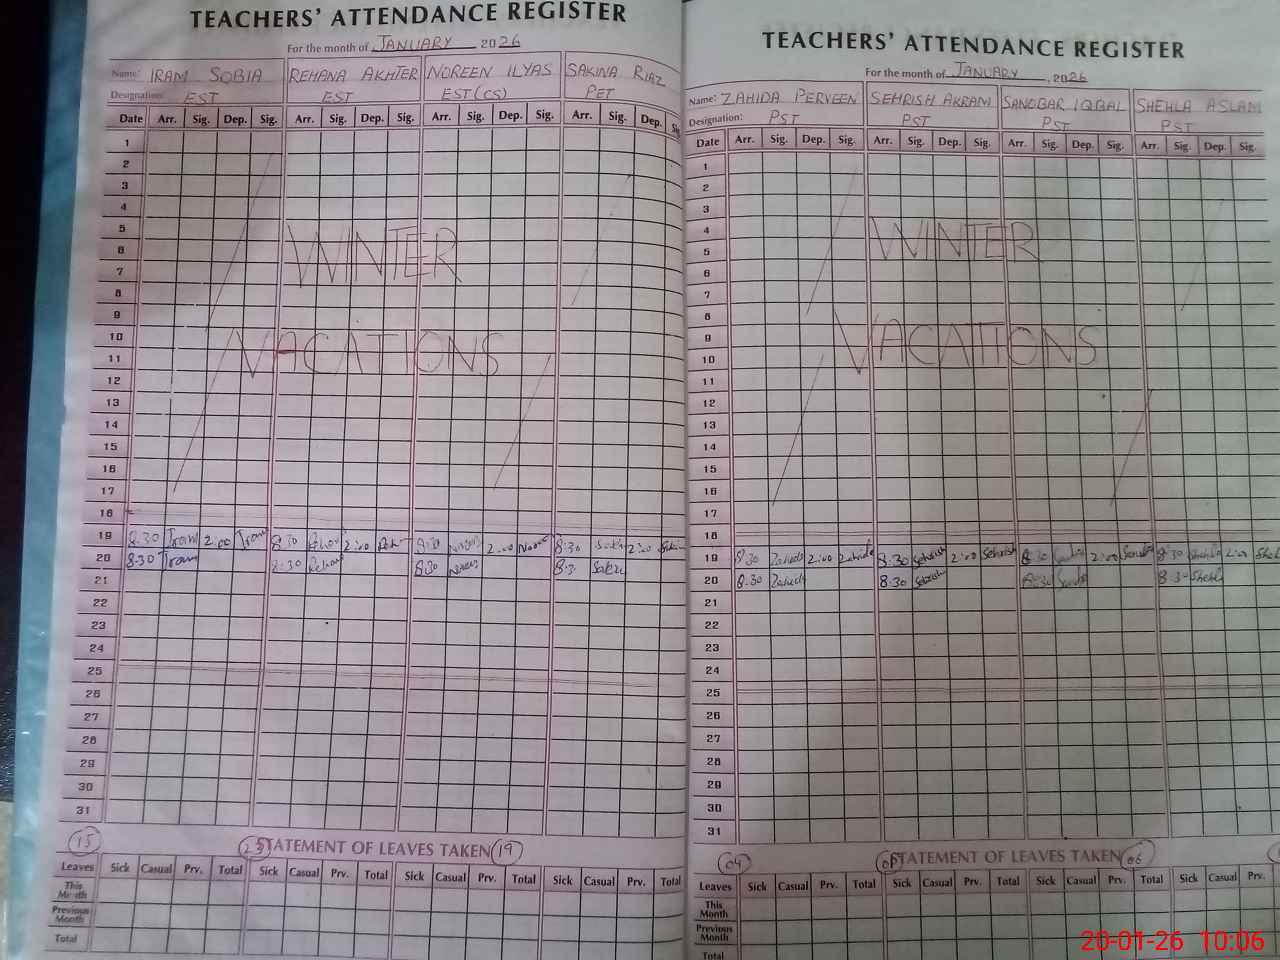 TEACHERS' ATTENDANCE REGISTER
For the month of JANUARY 2026
Name: IRAM SOBIA REHANA AKHTER NOREEN ILYAS SAKINA RIAZ
Designation: EST EST EST(CS) PET
Date Arr. Sig. Dep. Sig. Arr. Sig. Dep. Sig. Arr. Sig. Dep. Sig. Arr. Sig. Dep.
1
2
3
4
5
6
WINTER
7
8
9
10
VACATIONS
11
12
13
14
15
16
17
18
19 8.30 Iram 2:00 Iram 8:30 2:00 8:30 2:00 8:30 2:00
20 8.30 Iram 8:30 8:30
21
22
23
24
25
26
27
28
29
30
31
15 25 STATEMENT OF LEAVES TAKEN 19
Leaves Sick Casual Prv. Total Sick Casual Prv. Total Sick Casual Prv. Total Sick Casual Prv. Total
This Month
Previous Month
Total
TEACHERS' ATTENDANCE REGISTER
For the month of JANUARY, 2026
Name: ZAHIDA PERVEEN SEHRISH AKRAM SANOBAR IQBAL SHEHLA ASLAM
Designation: PST PST PST PST
Date Arr. Sig. Dep. Sig. Arr. Sig. Dep. Sig. Arr. Sig. Dep. Sig. Arr. Sig. Dep. Sig.
1
2
3
4
WINTER
5
6
7
8
9
VACATIONS
10
11
12
13
14
15
16
17
18
19 8:30 2:00 8:30 Sehrish 2:00 Sehrish 8:30 2:00 8:30 2:00
20 8.30 8:30 8:30
21
22
23
24
25
26
27
28
29
30
31
04 STATEMENT OF LEAVES TAKEN 06
Leaves Sick Casual Prv. Total Sick Casual Prv. Total Sick Casual Prv. Total Sick Casual Prv.
This Month
Previous Month
Total
20-01-26 10:06